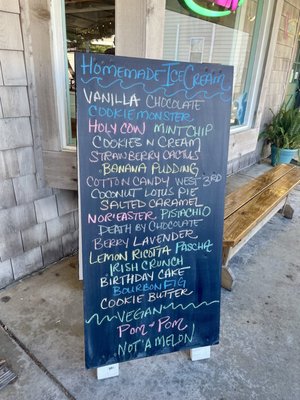 Homemade Ice Cream
Vanilla Chocolate
Cookie Monster
Holy Cow Mint Chip
Cookies N Cream
Strawberry Cactus
Banana Pudding
Cotton Candy West 3rd
Coconut Lotus Pie
Salted Caramel
Nor'easter Pistachio
Death by Chocolate
Berry Lavender
Lemon Ricotta Pascha
Irish Crunch
Birthday Cake
Bourbon Fig
Cookie Butter
Vegan
Pom-Pom
Not a Melon!